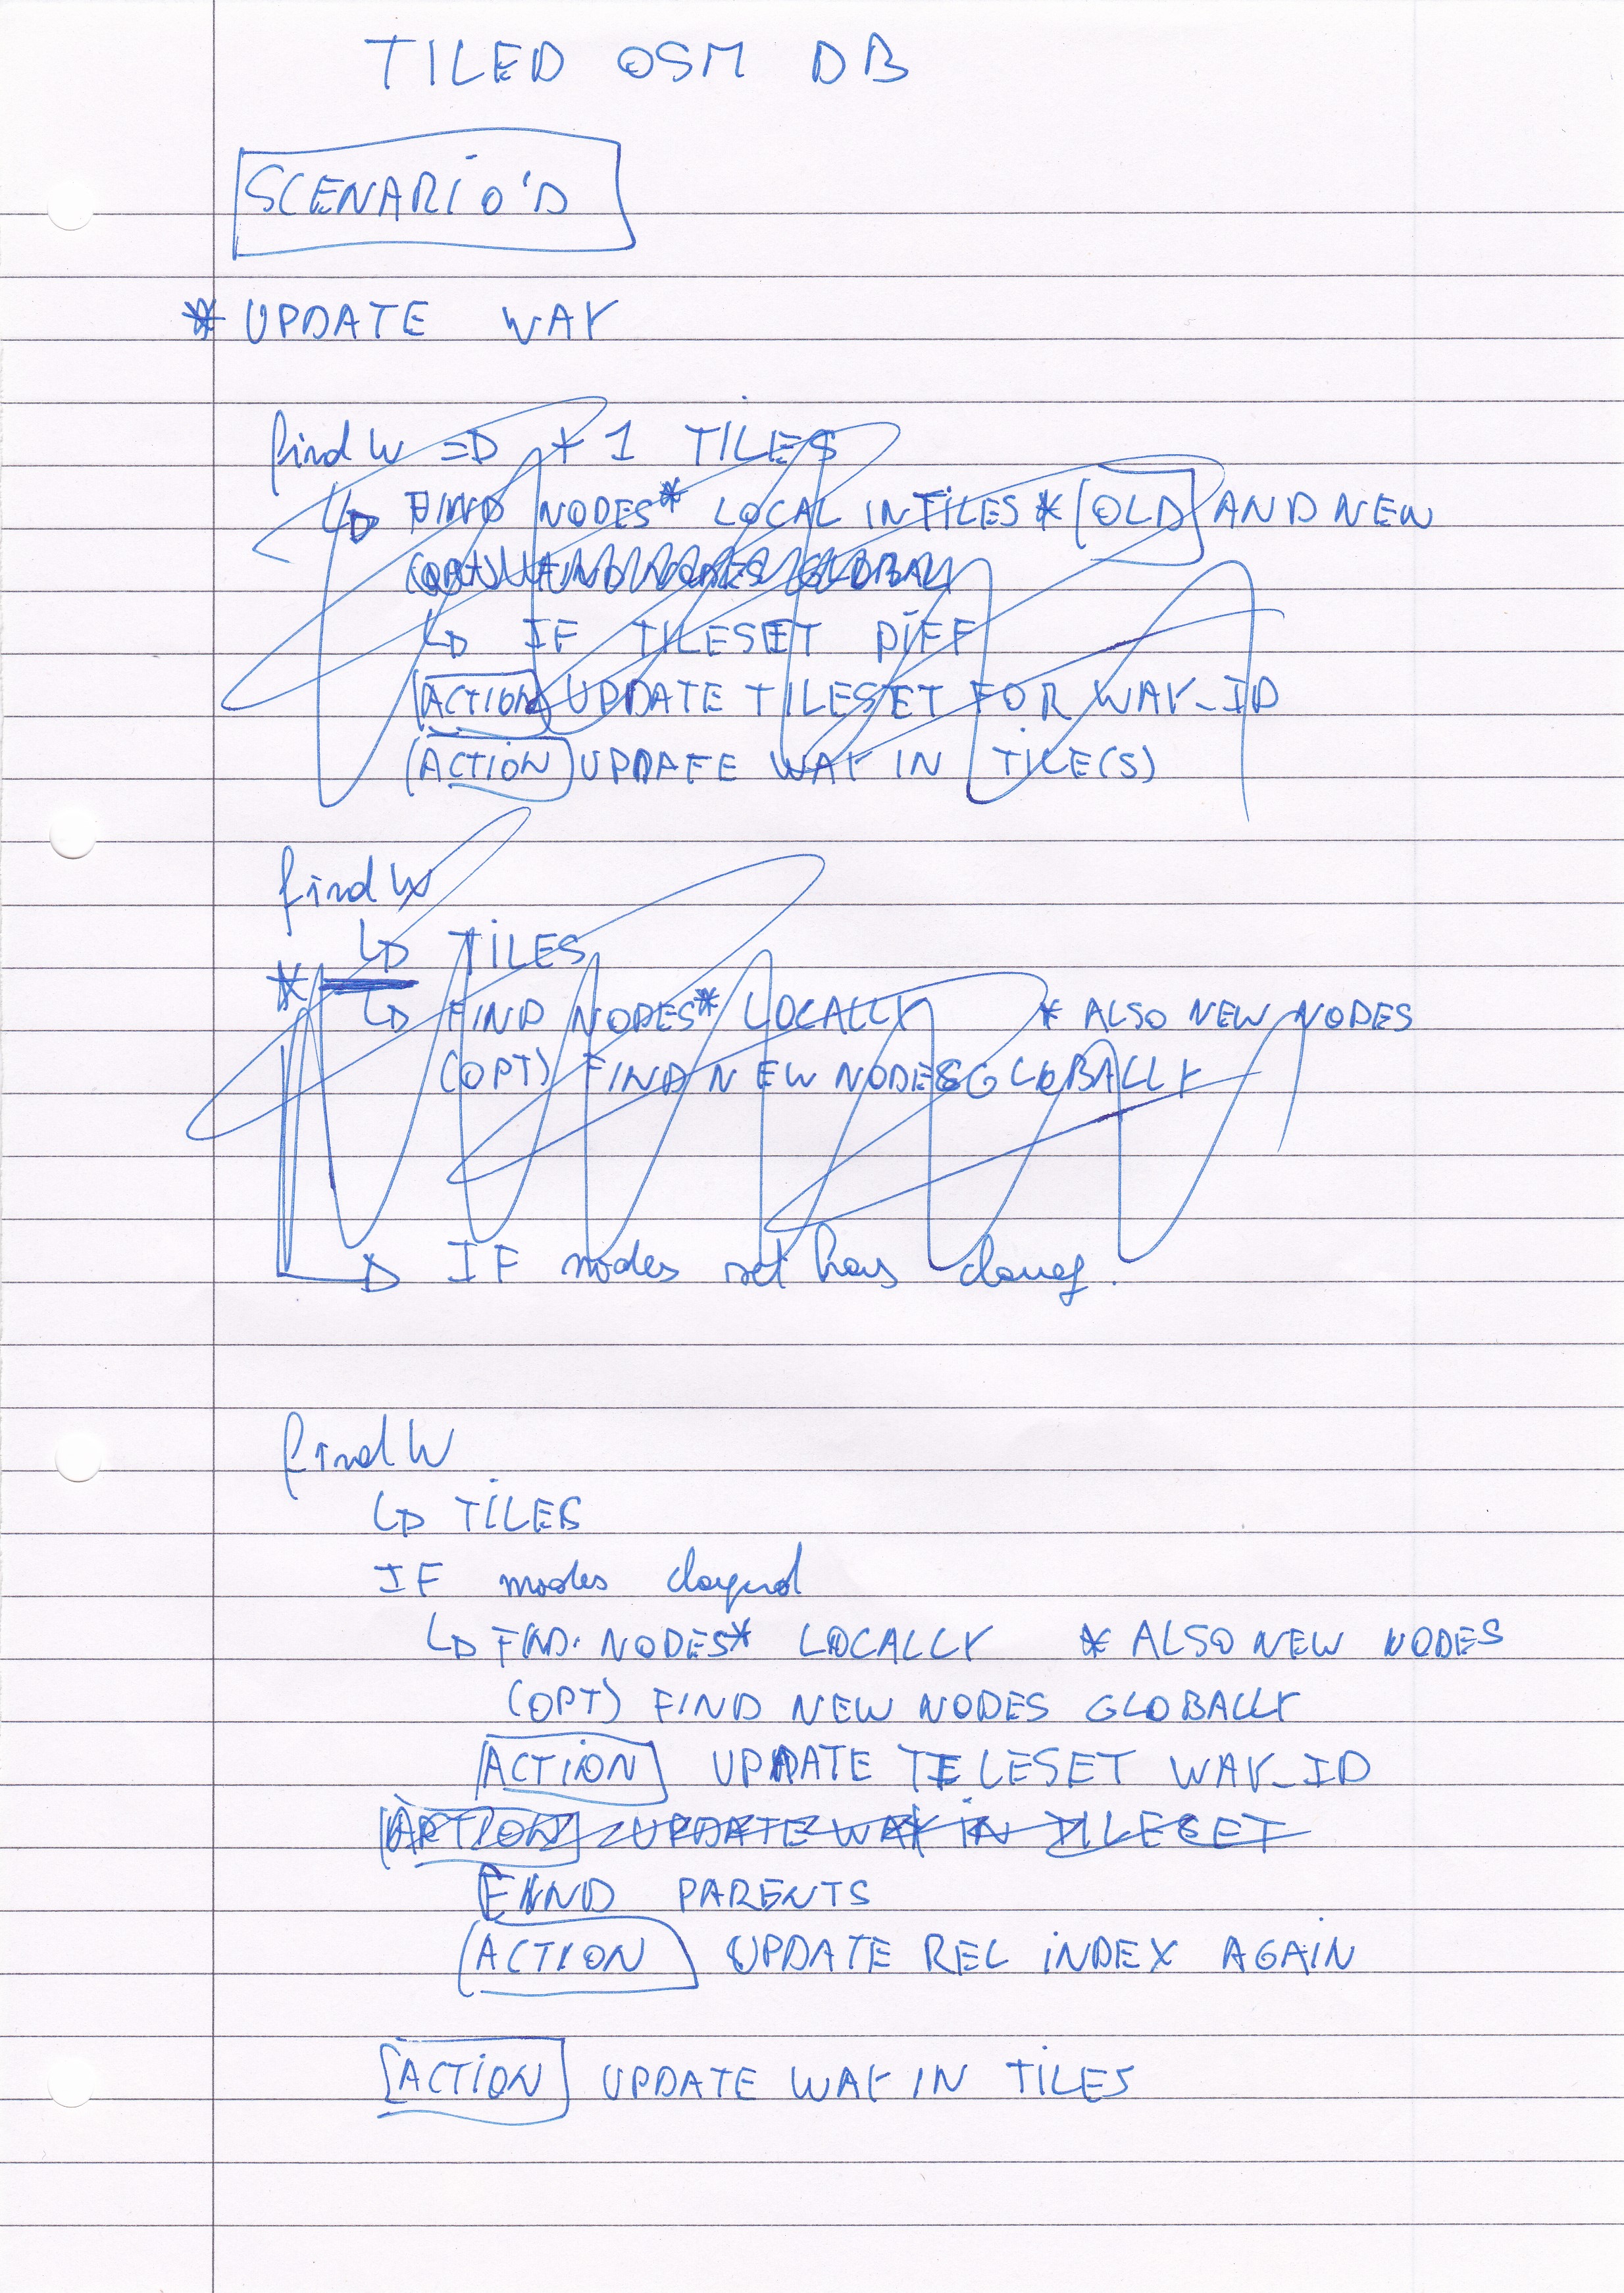 TILED OSM DB
SCENARIO'S
* UPDATE WAY
find W => + 1 TILES
↳ FIND NODES* LOCAL IN TILES * OLD AND NEW
(OPT) FIND NODES GLOBAL
↳ IF TILESET DIFF
ACTION UPDATE TILESET FOR WAY_ID
ACTION UPDATE WAY IN TILE(S)
find W
↳ TILES
*
↳ FIND NODES* LOCALLY * ALSO NEW NODES
(OPT) FIND NEW NODES GLOBALLY
IF nodes set has
find W
↳ TILES
IF nodes
↳ FIND NODES* LOCALLY * ALSO NEW NODES
(OPT) FIND NEW NODES GLOBALLY
ACTION UPDATE TILESET WAY_ID
ACTION UPDATE WAY IN TILESET
FIND PARENTS
ACTION UPDATE REL INDEX AGAIN
ACTION UPDATE WAY IN TILES